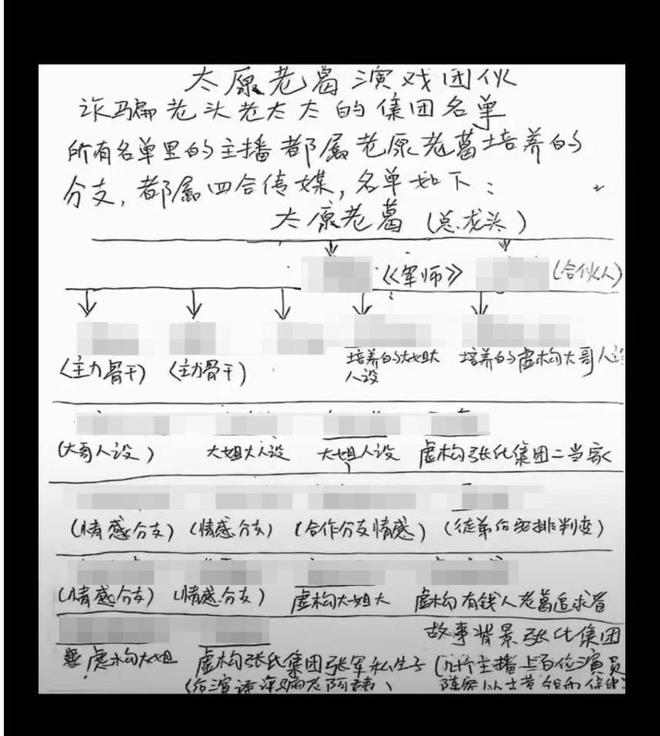 太原老葛演戏团伙
诈骗老头老太太的集团名单
所有名单里的主播都属老原老葛培养的
分支，都属四合传媒，名单如下：
太原老葛（总龙头）
《军师》 （合伙人）
（主力骨干） （主力骨干） 培养的大姐大人设 培养的虚构大哥人设
（大哥人设） 大姐大人设 大姐人设 虚构张氏集团二当家
（情感分支） （情感分支） （合作分支情感） （徒弟后安排判变）
（情感分支） （情感分支） 虚构大姐大 虚构有钱人老葛追求者
故事背景张氏集团
虚构大姐 虚构张氏集团张军私生子 （九十个主播上百位演员